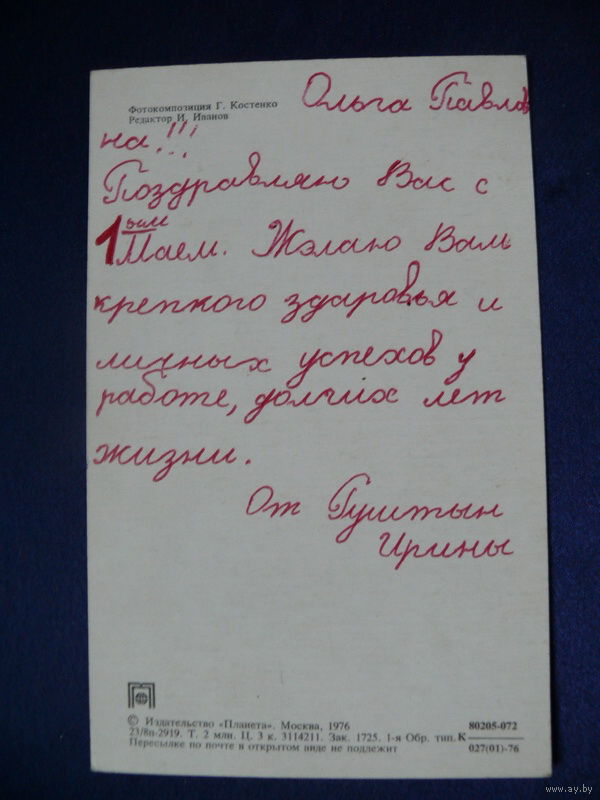 Фотокомпозиция Г. Костенко
Редактор И. Иванов
Ольга Павлов
на!!!
Поздравляю Вас с
1ым Маем. Жэлаю Вам
крепкого здаровья и
личных успехов у
работе, долгих лет
жизни.
От Гуштын
Ирины
© Издательство «Планета». Москва, 1976
23/8п-2919. Т. 2 млн. Ц. 3 к. 3114211. Зак. 1725. 1-я Обр. тип.
Пересылке по почте в открытом виде не подлежит
К 80205-072
027(01)-76
www.ay.by